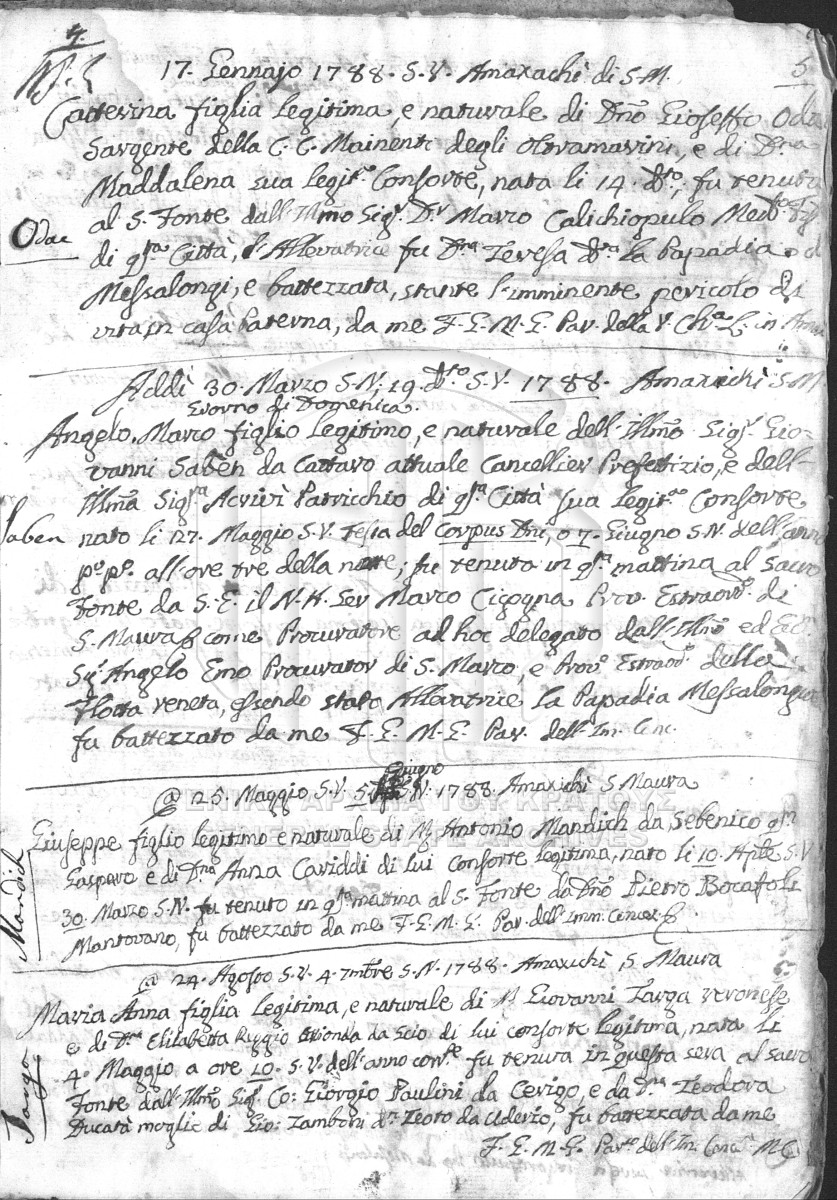 4.
5
17. Gennajo 1788. S.V. Amaxachi di S.M.
Catterina figlia legitima, e naturale di Dño Gioseffo Odac
Sargente della C. C. Mainenti degli Oltramarini, e di Dna
Maddalena sua legit.a Consorte, nata li 14. dto, fu tenuta
al S. Fonte dall' Illmo Sigr. Dr Marco Calichiopulo
Odac
di qsta Città, l'Allevatrice fu Dna Teresa dta la Papadia
Messalongi, e battezzata, stante l'imminente pericolo di
vita, in casa Paterna, da me F. E. M. E. Par. della V.
Addì 30. Marzo S.N. 19. dto S.V. 1788. Amaxichi S.M.
Giorno di Domenica.
Angelo Marco figlio legitimo, e naturale dell' Illmo Sigr. Gio=
vanni Saben da Cattaro attuale Cancellier Prefettizio, e dell'=
Illma Sigra Acrivi Patricchio di qsta Città sua legit.a Consorte
Saben
nato li 27. Maggio S.V. Festa del Corpus Dni, o 7. Giugno S.N. dell'anno
po. po. all' ore tre della notte; fu tenuto in qsta mattina al Sacro
Fonte da S. E. il N. H. Ser Marco Cigogna Prov. Estraord. di
S. Maura come Procuratore ad hoc delegato dall' Illmo ed Ecc.
Sigr. Angelo Emo Procurator di S. Marco, e Provr. Estraord. della
Flotta veneta, essendo stata Allevatrice la Papadia Messalongi
fu battezzato da me F. E. M. E. Par. dell' Im. Conc.
Giugno
@ 25. Maggio S.V. 5. S.N. 1788. Amaxichi S. Maura
Giuseppe figlio legitimo e naturale di Mr Antonio Mandich da Sebenico qm
Gasparo e di Dna Anna Cariddi di lui consorte legitima, nato li 10. Aple S.V
Mandich
30. Marzo S.N. fu tenuto in qsta matina al S. Fonte da Dño Pietro Bocafoli
Mantovano, fu battezzato da me F. E. M. E. Par. dell' Imm. Concez.
@ 24. Agosto S.V. 4. 7mbre S.N. 1788. Amaxichi, S. Maura
Maria Anna figlia legitima, e naturale di Mr Giovanni Targa veronese
e di Dna Elisabetta Ruggio da Scio di lui consorte legitima, nata li
Targa
4. Maggio a ore 10. S.V. dell'anno corrte fu tenuta in questa sera al sacro
Fonte dall' Illmo Sigr. Co: Giorgio Paulini da Cerigo, e da Dna Teodora
Ducatà moglie di Gio: Zamboni da Uderzo, fu battezzata da me
F. E. M. E. Par. dell' Im. Conc.
ΓΕΝΙΚΑ ΑΡΧΕΙΑ ΤΟΥ ΚΡΑΤΟΥΣ